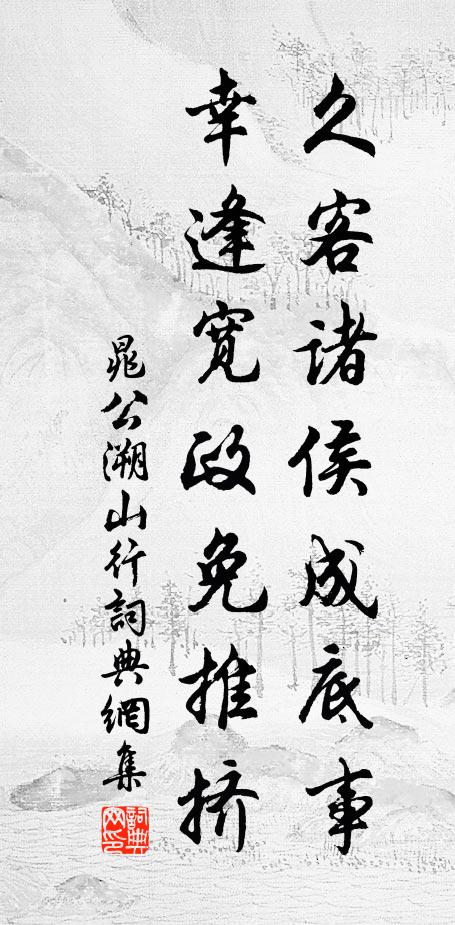 久客诸侯成底事
幸逢宽政免推挤
晁公溯山行詞典網集
詞典网印